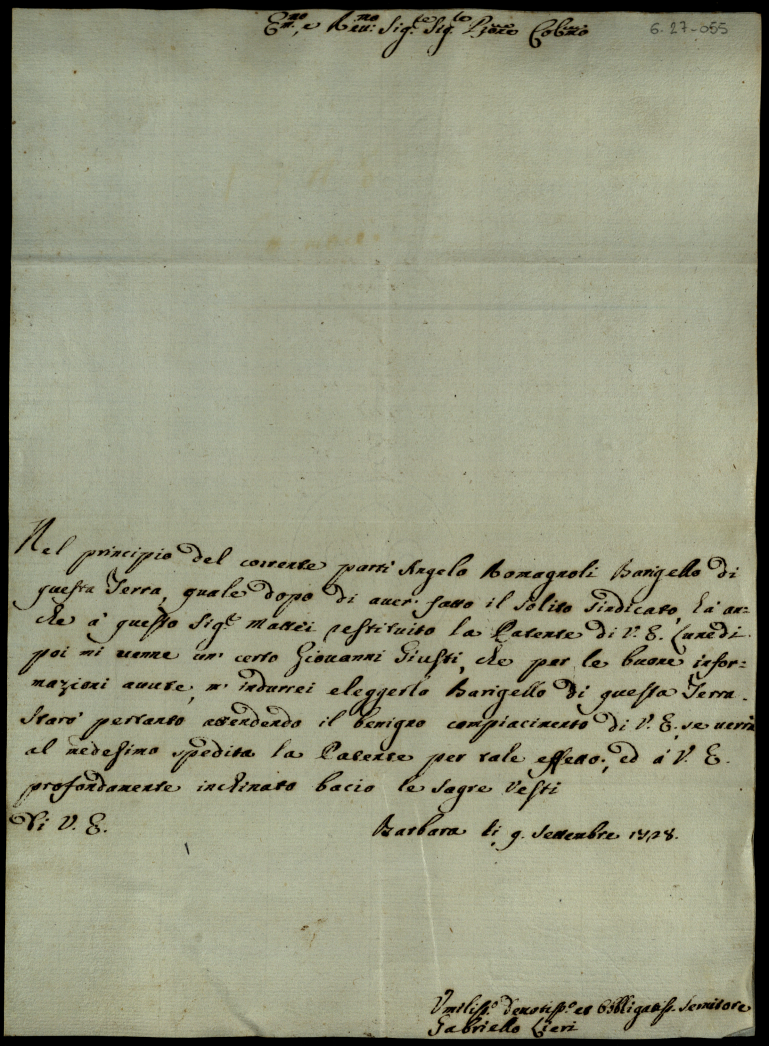 Em.mo, e Rev.mo Sig.re Sig.re P̃rone Col.mo
6-27-055
Nel principio del corrente partì Angelo Romagnoli Barigello di
questa Terra, quale dopo di aver fatto il solito Sindicato, hà an=
che à questo Sig.r Mattei restituito la Patente di V. E. Lunedì
poi mi venne un certo Giovanni Giusti, che per le buone infor=
mazioni avute, m'indurrei eleggerlo Barigello di questa Terra.
Starò pertanto attendendo il benigno compiacimento di V. E. se verrà
al medesimo spedita la Patente per tale effetto; ed à V. E.
profondamente inchinato bacio le Sagre Vesti
Di V. E.
Barbara li 9. Settembre
Umiliss.o Devotiss.o et Obbligatiss. Servitore
Gabriello